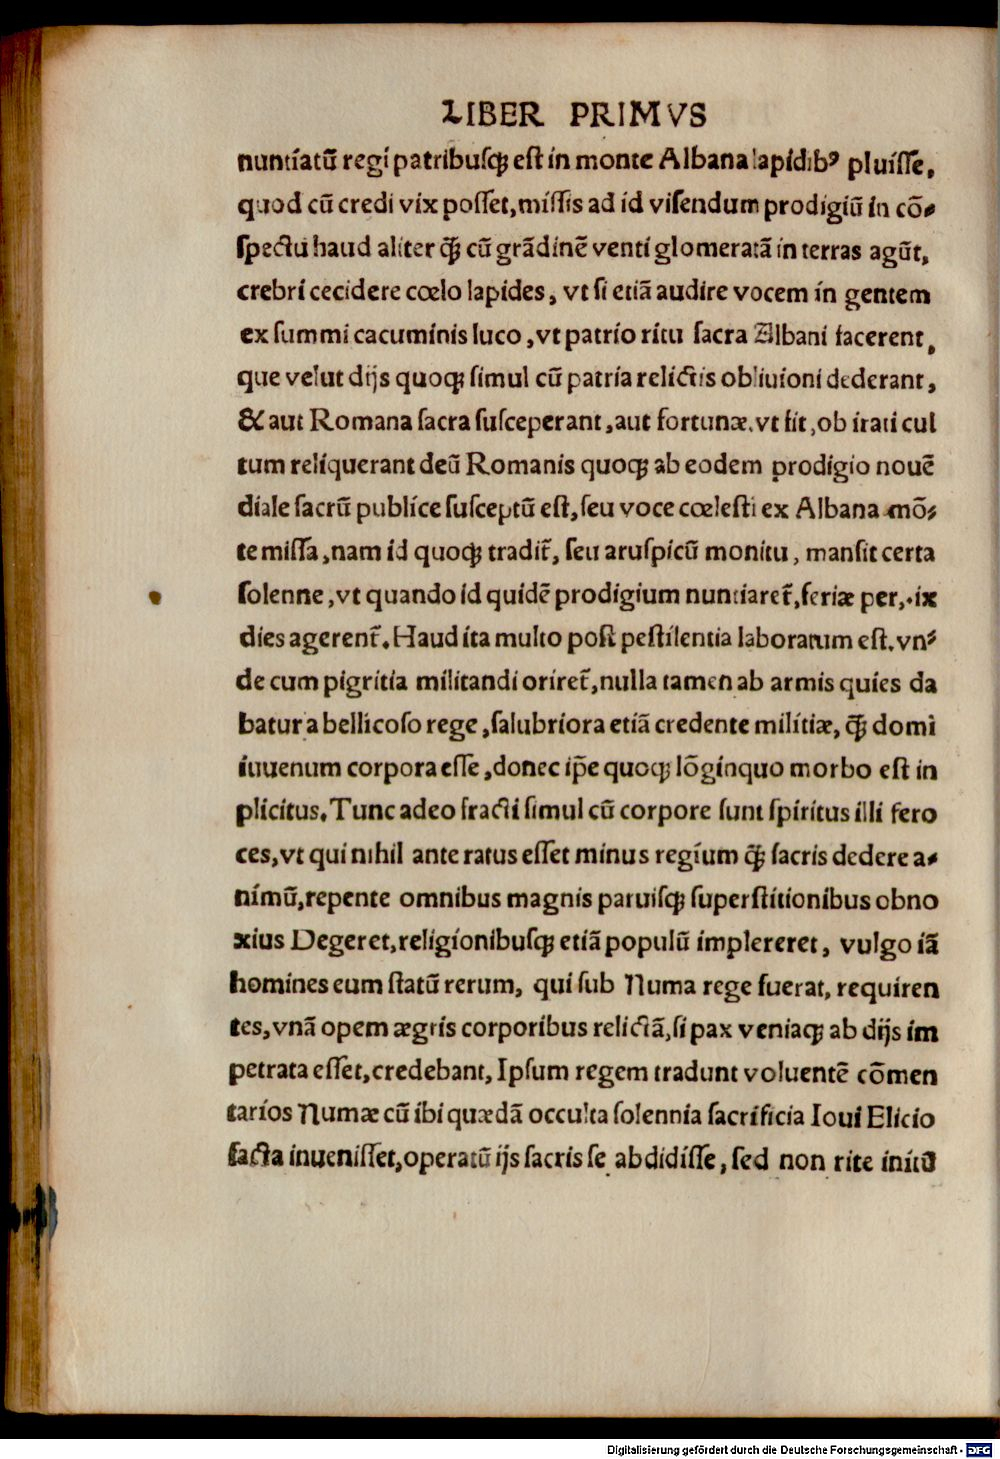 LIBER PRIMVS
nuntiatū regi patribusq; est in monte Albana lapidibꝰ pluisse,
quod cū credi vix posset, missis ad id visendum prodigiū in cō-
spectu haud aliter q̄ȝ cū grādinē venti glomeratā in terras agūt,
crebri cecidere cœlo lapides, vt si etiā audire vocem in gentem
ex summi cacuminis luco, vt patrio ritu sacra Albani facerent,
que velut dijs quoq; simul cū patria relictis obliuioni dederant,
& aut Romana sacra susceperant, aut fortunæ. vt fit, ob irati cul
tum reliquerant deū Romanis quoq; ab eodem prodigio nouē
diale sacrū publice susceptū est, seu voce cœlesti ex Albana mō-
te missa, nam id quoq; tradit̄, seu aruspicū monitu, mansit certa
solenne, vt quando id quidē prodigium nuntiaret̄, feriæ per,.ix
dies agerent̄. Haud ita multo post pestilentia laboratum est. vn-
de cum pigritia militandi oriret̄, nulla tamen ab armis quies da
batur a bellicoso rege, salubriora etiā credente militiæ, q̄ȝ domi
iuuenum corpora esse, donec ip̄e quoq; lōginquo morbo est in
plicitus. Tunc adeo fracti simul cū corpore sunt spiritus illi fero
ces, vt qui nihil ante ratus esset minus regium q̄ȝ sacris dedere a-
nimū, repente omnibus magnis paruisq; superstitionibus obno
xius Degeret, religionibusq; etiā populū impleret, vulgo iā
homines eum statū rerum, qui sub Numa rege fuerat, requiren
tes, vnā opem ægris corporibus relictā, si pax veniaq; ab dijs im
petrata esset, credebant, Ipsum regem tradunt voluentē cōmen
tarios Numæ cū ibi quædā occulta solennia sacrificia Ioui Elicio
facta inuenisset, operatū ijs sacris se abdidisse, sed non rite initū
Digitalisierung gefördert durch die Deutsche Forschungsgemeinschaft - DFG